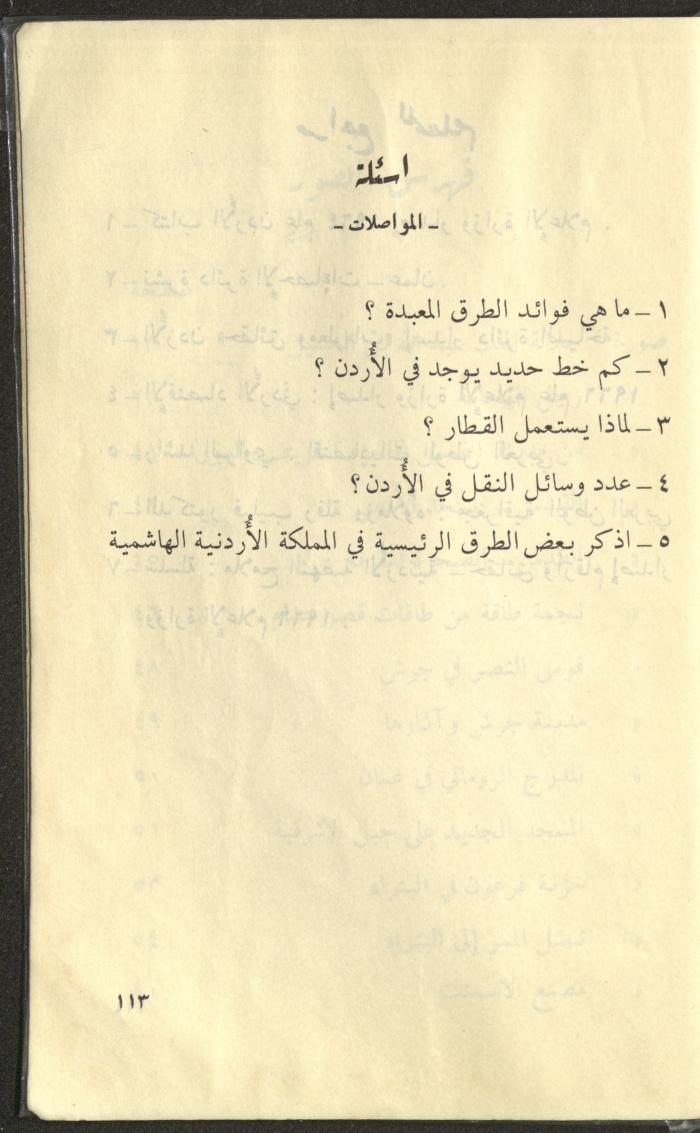 اسئلة
ـ المواصلات ـ
١ ـ ما هي فوائد الطرق المعبدة ؟
٢ ـ كم خط حديد يوجد في الأُردن ؟
٣ ـ لماذا يستعمل القطار ؟
٤ ـ عدد وسائل النقل في الأُردن ؟
٥ ـ اذكر بعض الطرق الرئيسية في المملكة الأُردنية الهاشمية
١١٣